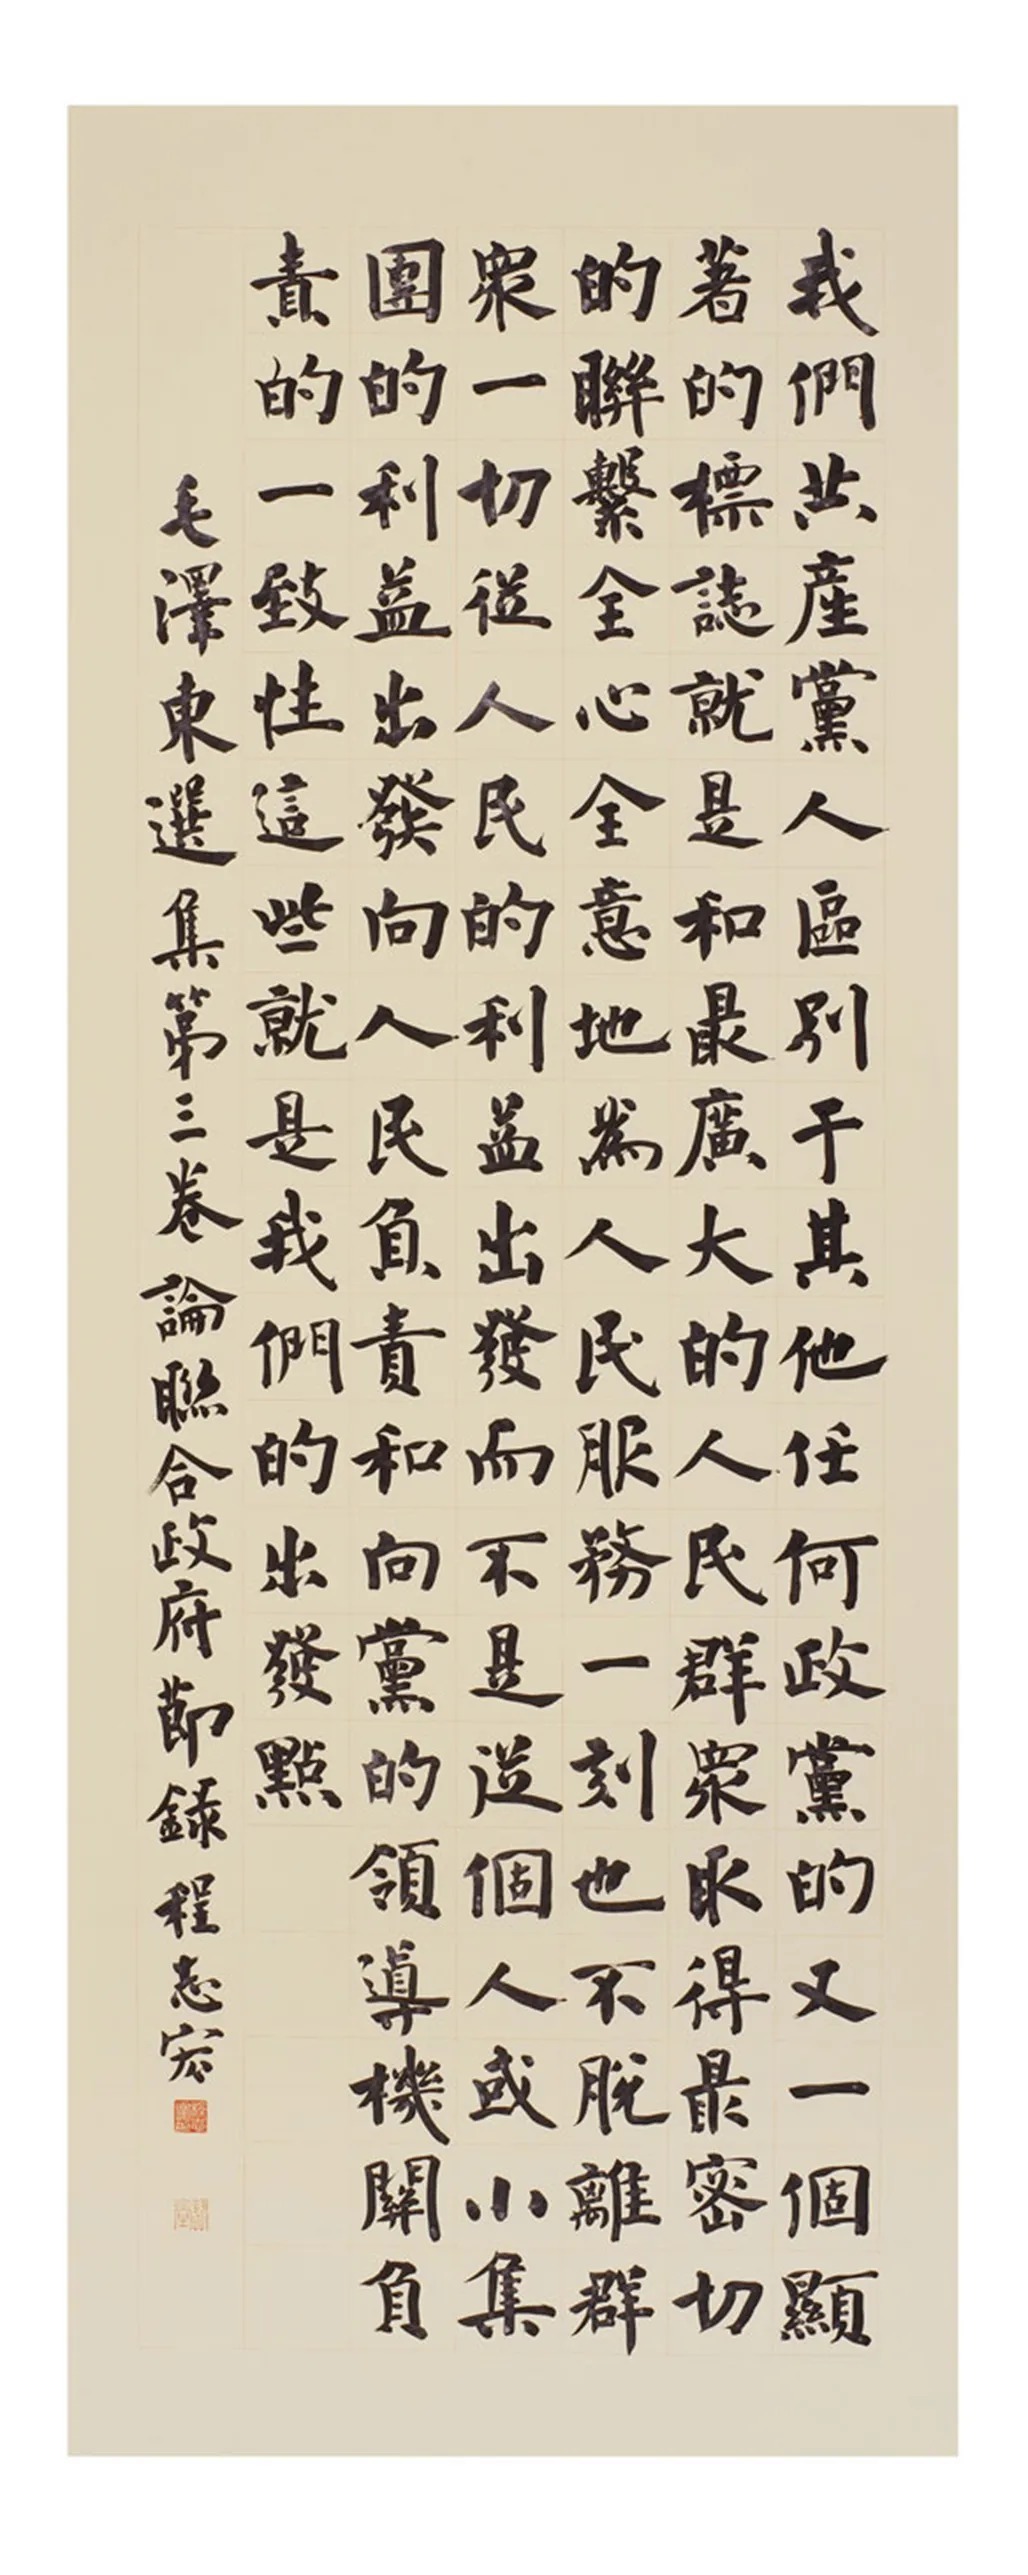 我們共產黨人區別于其他任何政黨的又一個顯
著的標誌就是和最廣大的人民群眾取得最密切
的聯繫全心全意地為人民服務一刻也不脫離群
眾一切從人民的利益出發而不是從個人或小集
團的利益出發向人民負責和向黨的領導機關負
責的一致性這些就是我們的出發點
毛澤東選集第三卷論聯合政府節錄程志宏